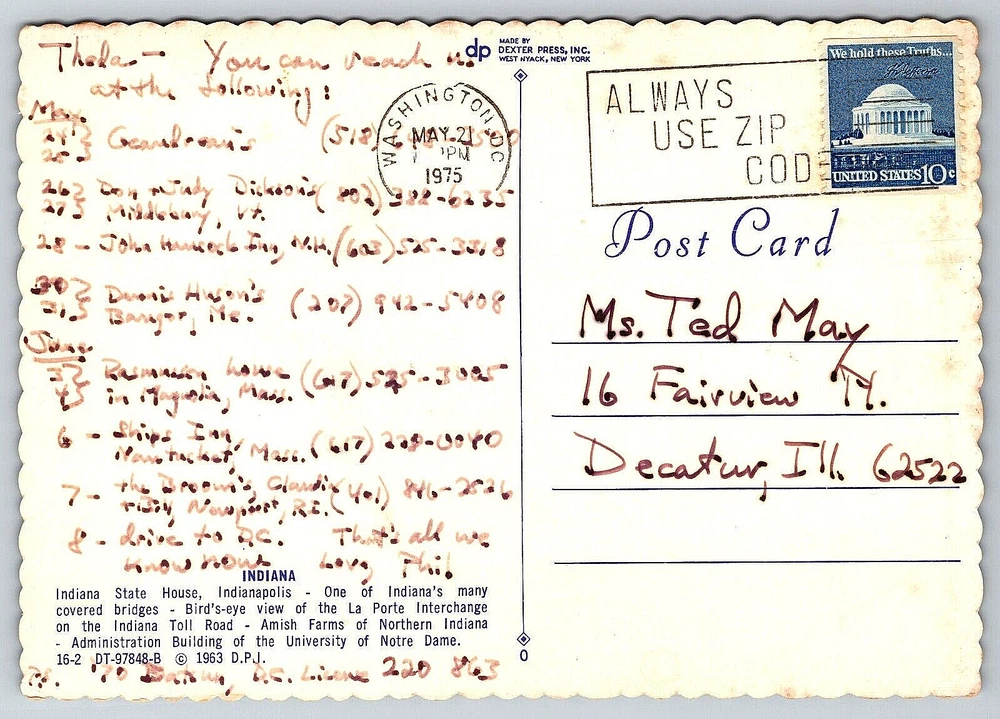 Theda — You can reach us
at the following:
May
24 }
25 } (518)
26 } Don + Judy Dickson's (802) 388-6235
27 } Middlebury, Vt.
28 - John Hancock Inn, N.H. (603) 525-3318
30 }
31 } Bangor, Me. (207) 942-5408
June
3 }
4 } in Magnolia, Mass. (617) 525-3005
6 - Ships Inn,
Nantucket, Mass. (617) 228-0040
7 - the Broom's
Newport, R.I. (401) 846-2526
8 - drive to D.C. That's all we
know now Love, Phil
INDIANA
Indiana State House, Indianapolis - One of Indiana's many
covered bridges - Bird's-eye view of the La Porte Interchange
on the Indiana Toll Road - Amish Farms of Northern Indiana
- Administration Building of the University of Notre Dame.
16-2 DT-97848-B © 1963 D.P.J.
P.S. '70 Datsun, D.C. License 220 863
dp MADE BY
DEXTER PRESS, INC.
WEST NYACK, NEW YORK
WASHINGTON, DC
MAY 21
PM
1975
ALWAYS
USE ZIP
CODE
We hold these Truths...
UNITED STATES 10c
Post Card
Ms. Ted May
16 Fairview Tr.
Decatur, Ill. 62522
0